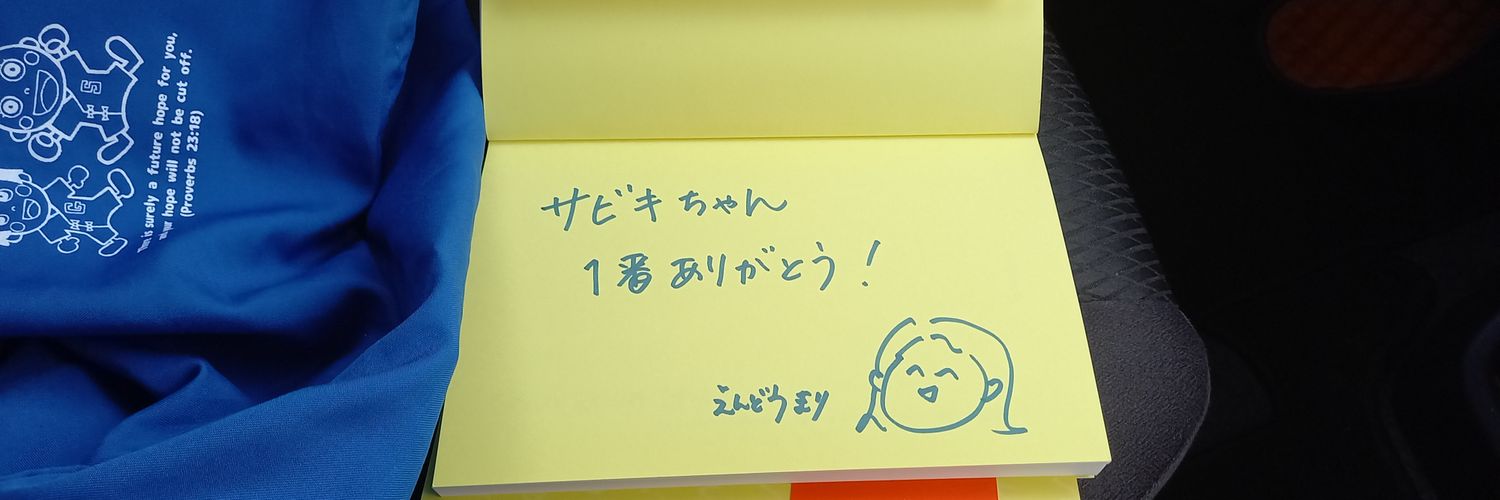 サビキちゃん
1番ありがとう!
えんどうまり
is surely a future hope for you,
hope will not be cut off.
(Proverbs 23:18)
S
G